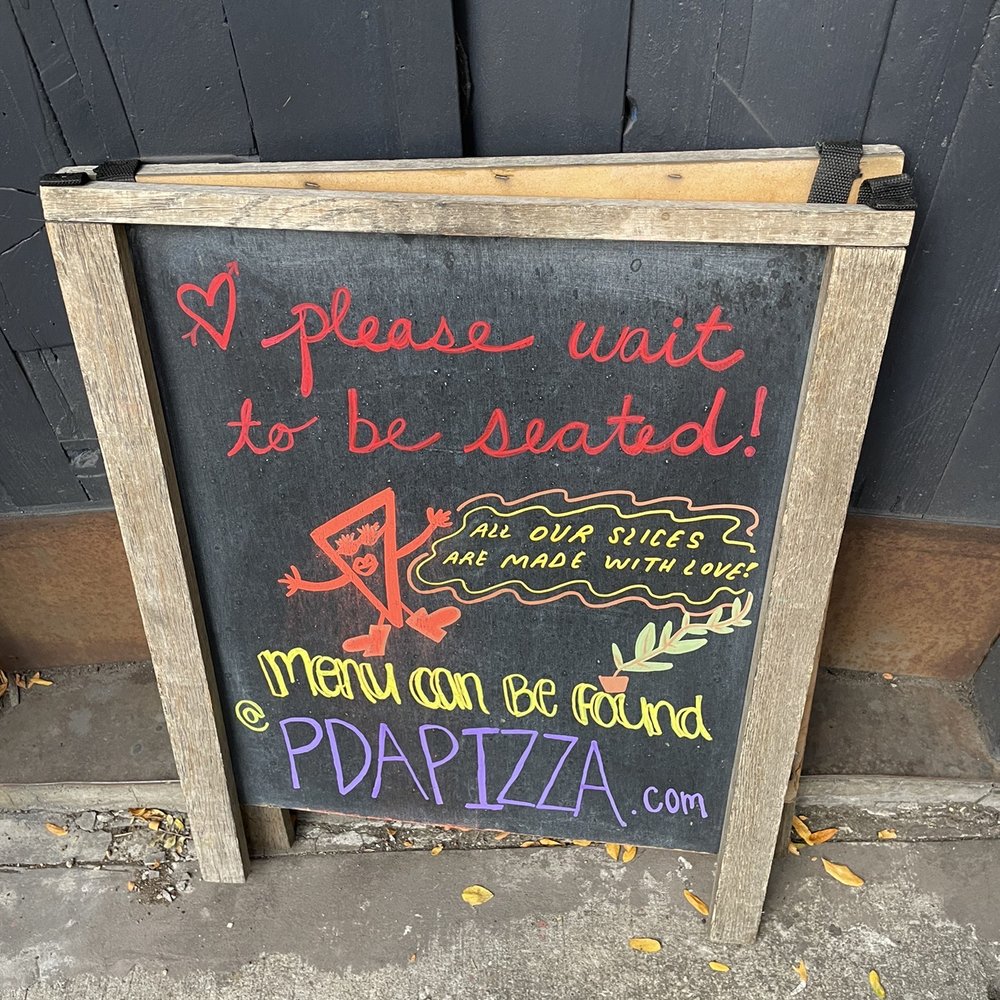 please wait
to be seated!
ALL OUR SLICES
ARE MADE WITH LOVE!
Menu can Be Found
@ PDAPIZZA.com